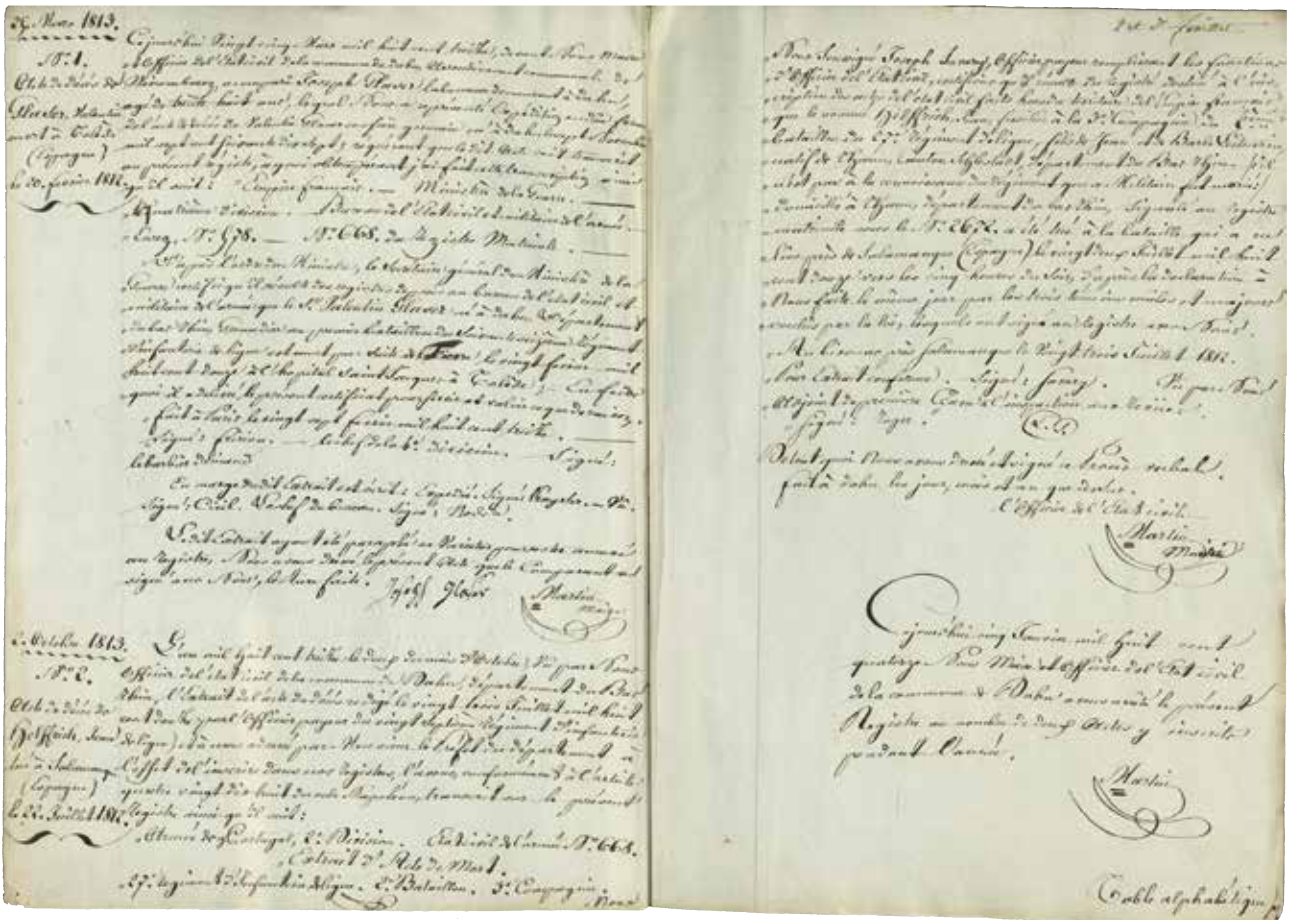 25. Mars 1813.
N.° 1.
Acte de décès de
Glaser, Valentin
mort à Tolède
(Espagne)
le 20. février 1812.
Cejourd'hui Vingt cinq Mars mil huit cent treize, devant Nous Maire
Officier de l'Etat civil de la commune de dahn, Arrondissement communal de
Wissembourg, a comparu Joseph Glaser laboureur demeurant à dahn,
agé de trente huit ans, lequel Nous a représenté l'expédition en due forme
de l'acte de décès de Valentin Glaser, né à dahn le sept Novembre
mil sept cent soixante dix sept, requérant que le dit Acte soit transcrit
au présent registre, à quoi obtempérant, j'ai fait cette transcription ainsi
qu'il suit : Empire français. — Ministère de la Guerre.
Quatrième division. Bureau de l'Etat civil et militaire de l'armée.
Enreg. N.° 978. — N.° 668. du Registre Matricule.
D'après l'ordre du Ministre, le Secrétaire général du Ministère de la
Guerre certifie qu'il résulte des registres déposés au bureau de l'état civil et
militaire de l'armée que le S.r Valentin Glaser né à dahn Département
du bas Rhin, Grenadier au premier bataillon du Soixante
d'infanterie de ligne est mort par suite de fièvre le vingt février mil
huit cent douze à l'hôpital Saint à Tolède ; En foi de
quoi il a délivré le présent certificat pour servir et valoir ce que de raison.
fait à Paris, le vingt sept février mil huit cent treize.
Signé : — Le chef de la 4.e division. — Signé :
En marge du dit Extrait est écrit : Expédié. Signé
Signé : Civil. Le chef du bureau. Signé :
Ledit Extrait ayant été paraphé pour rester annexé
au Registre, Nous avons dressé le présent Acte que le Comparant a
signé avec Nous, lecture faite.
Joseph Glaser
Martin
Maire
2. Octobre 1813.
N.° 2.
Acte de décès de
Helffrich, Jean
tué à Salamanque
(Espagne)
le 22. Juillet 1812.
L'an mil huit cent treize le deux du mois d'Octobre ; Vu par Nous
Officier de l'état civil de la commune de Dahn, département du Bas
Rhin, l'Extrait de l'acte de décès rédigé le vingt trois Juillet mil huit
cent douze par l'Officier payeur du vingt septième Régiment d'infanterie
de ligne, à nous adressé par Monsieur le Préfet du département à
l'effet de l'inscrire dans nos Registres, l'avons, conformément à l'article
quatre vingt dix huit du code Napoléon, transcrit sur le présent
Registre ainsi qu'il suit :
Armée de Portugal, 2.e Division. Etat civil de l'armée N.° 668.
Extrait d'Acte de Mort.
27.e régiment d'Infanterie de ligne. 2.e Bataillon. 3.e Compagnie.
Nous
Nous Soussigné Joseph Officier payeur remplissant les fonctions
d'Officier de l'Etat civil, certifions qu'il résulte du registre destiné à l'ins
cription des actes de l'état civil faits hors du territoire de l'Empire français
que le nommé Helffrich, Jean, fusilier à la 3.e Compagnie du
bataillon du 27.e Régiment de ligne, fils de Jean et de Barbe
natif de département du Bas Rhin (il
n'est pas à la connaissance du Régiment que ce Militaire fut marié)
domicilié à département du bas Rhin, Signalé au registre
matricule sous le N.° 2672. a été tué à la bataille qui a eu
lieu près de Salamanque (Espagne) le vingt deux Juillet mil huit
cent douze vers les cinq heures du Soir, D'après la déclaration à
Nous faite le même jour par les trois témoins mâles et majeurs
voulus par la loi, lesquels ont signé au Registre avec Nous.
Au bivouac, près Salamanque le Vingt trois Juillet 1812.
Pour Extrait conforme. Signé : Vu par Nous
Adjoint de première Classe à l'inspection aux revues
Signé :
(L.S.)
De tout quoi Nous avons dressé et signé ce Procès verbal.
fait à dahn les jour, mois et an que dessus.
L'Officier de l'Etat civil
Martin
Maire
Cejourd'hui cinq Janvier mil huit cent
quatorze Nous Maire et Officier de l'Etat civil
de la commune de Dahn avons arrêté le présent
Registre au nombre de deux Actes y inscrits
pendant l'année.
Martin
Table alphabétique